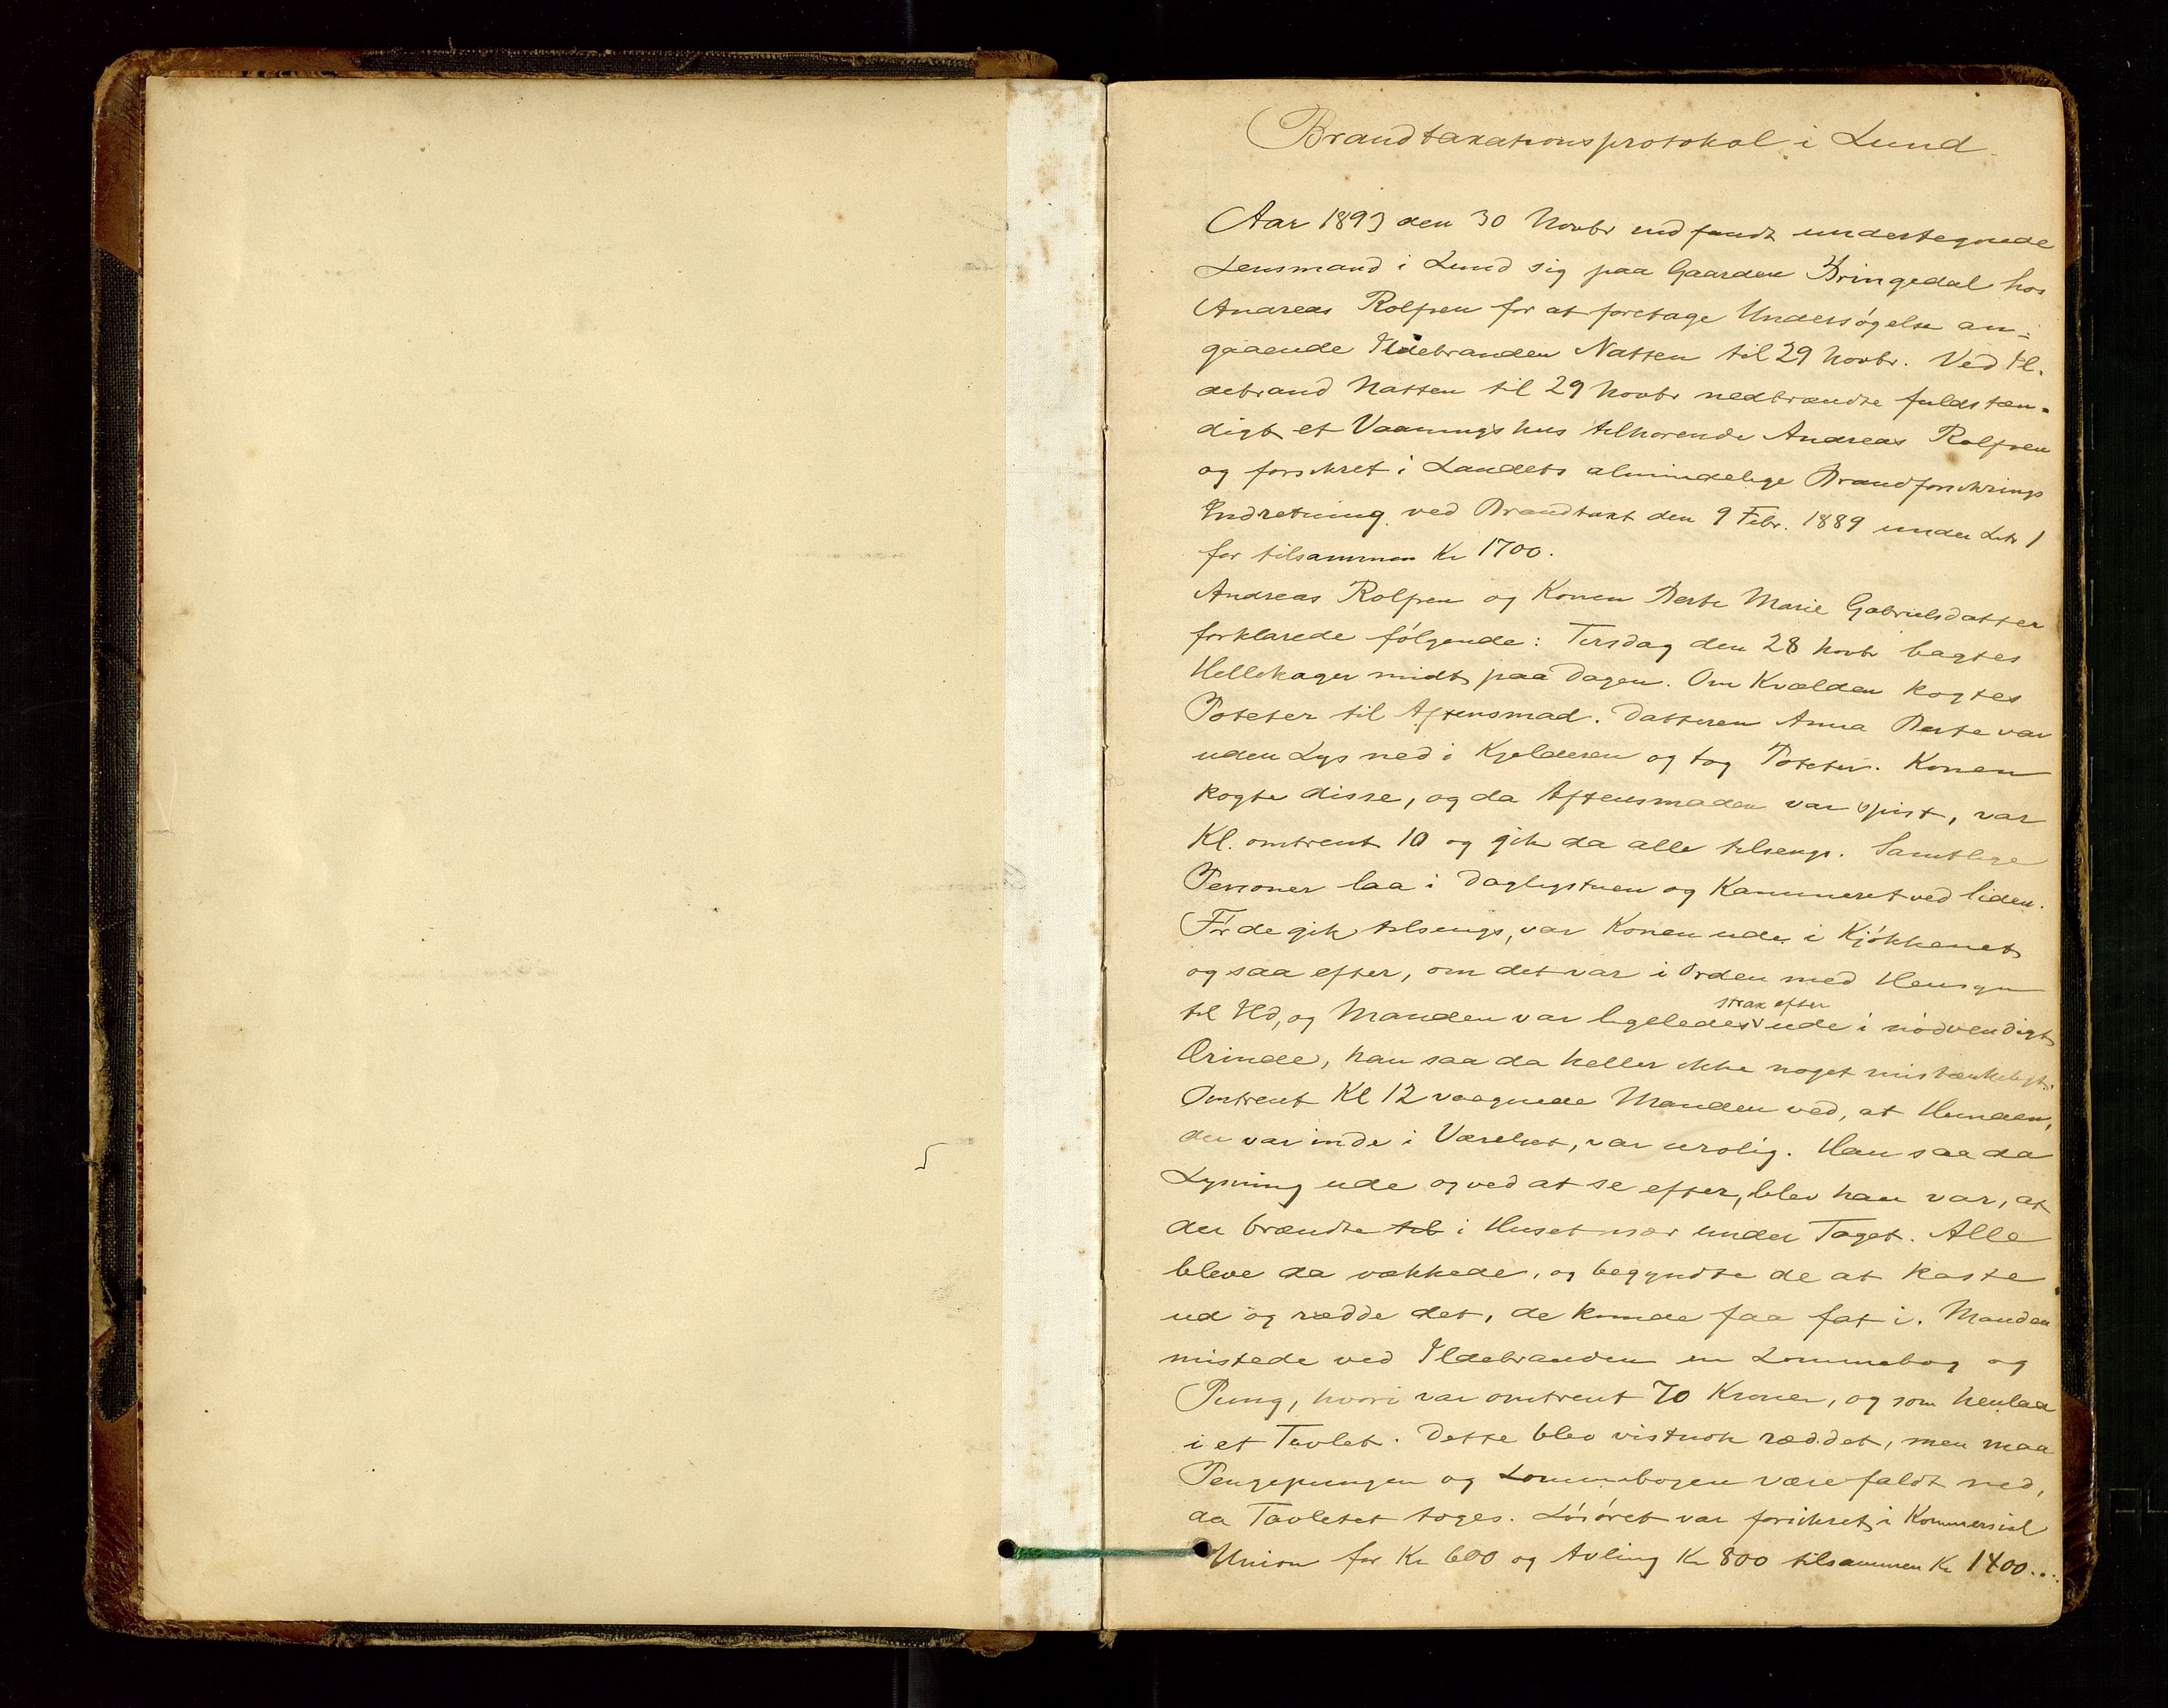 Brandtaxationsprotokol i Lund.
Aar 1893 den 30 Novbr indfandt undertegnede
Lensmand i Lund sig paa Gaarden Bringedal hos
Andreas Rolfsen for at foretage Undersøgelse an-
gaaende Ildebranden Natten til 29 Novbr. Ved Il-
debrand Natten til 29 Novbr nedbrændte fuldstæn-
digt et Vaaningshus tilhørende Andreas Rolfsen
og forsikret i Landets almindelige Brandforsikrings
Indretning ved Brandtaxt den 9 Febr. 1889 under Litr 1
for tilsammen Kr 1700.
Andreas Rolfsen og Konen Berte Marie Gabrielsdatter
forklarede følgende: Tirsdag den 28 Novbr bagtes
Hellekager midt paa Dagen. Om Kvælden kogtes
Poteter til Aftensmad. Datteren Anna Berte var
uden Lys ned i Kjelderen og tog Poteter. Konen
kogte disse, og da Aftensmaden var spist, var
Kl. omtrent 10 og gik da alle tilsengs. Samtlige
Personer laa i Dagligstuen og Kammeret ved Siden.
Før de gik tilsengs, var Konen ude i Kjøkkenet
og saa efter, om det var i Orden med Hensyn
til Ild, og Manden var ligeledes strax efter ude i nødvendigt
Ærinde, han saa da heller ikke noget mistænkeligt.
Omtrent Kl 12 vaagnede Manden ved, at Hunden,
der var inde i Værelset, var urolig. Han saa da
Lysning ude og ved at se efter, blev han var, at
der brændte til i Huset nær under Taget. Alle
bleve da vækkede, og begyndte de at kaste
ud og rædde det, de kunde faa fat i. Manden
mistede ved Ildebranden en Lommebog og
Pung, hvori var omtrent 70 Kroner, og som henlaa
i et Tavlet. Dette blev vistnok ræddet, men maa
Pengepungen og Lommebogen være faldt ned,
da Tavletet toges. Løsøret var forsikret i Kommersial
Union for Kr 600 og Avling Kr 800 tilsammen Kr 1400...